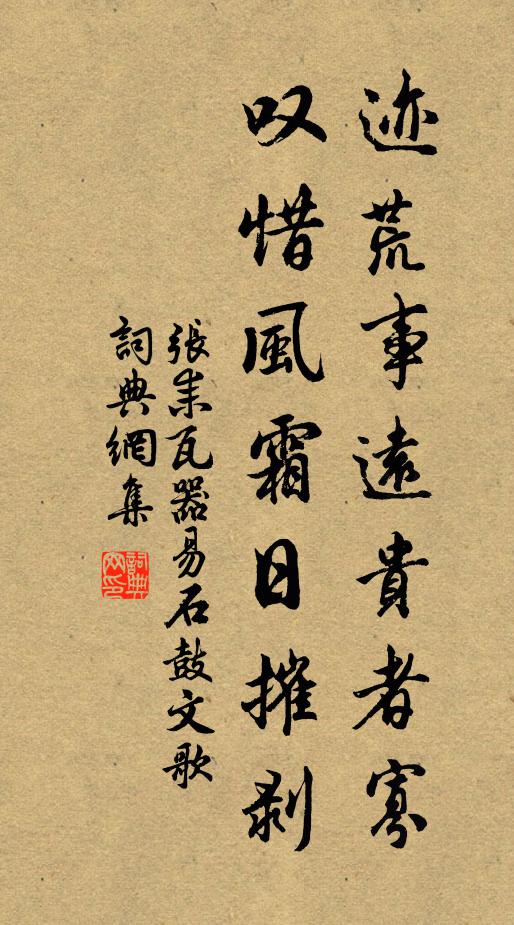 迹荒事遠貴者寡
叹惜風霜日摧剥
張耒瓦器易石鼓文歌
詞典網集
詞典網印